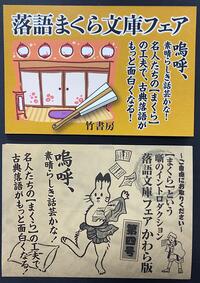 落語まくら文庫フェア
嗚呼、
素晴らしき話芸かな!
名人たちの【まくら】
の工夫で、古典落語が
もっと面白くなる!
竹書房
ご自由にお取りください
【まくら】という
噺のイントロダクション
落語文庫フェアかわら版
第四号
嗚呼、
素晴らしき話芸かな!
名人たちの【まくら】の工夫で、
古典落語が
もっと面白くなる!